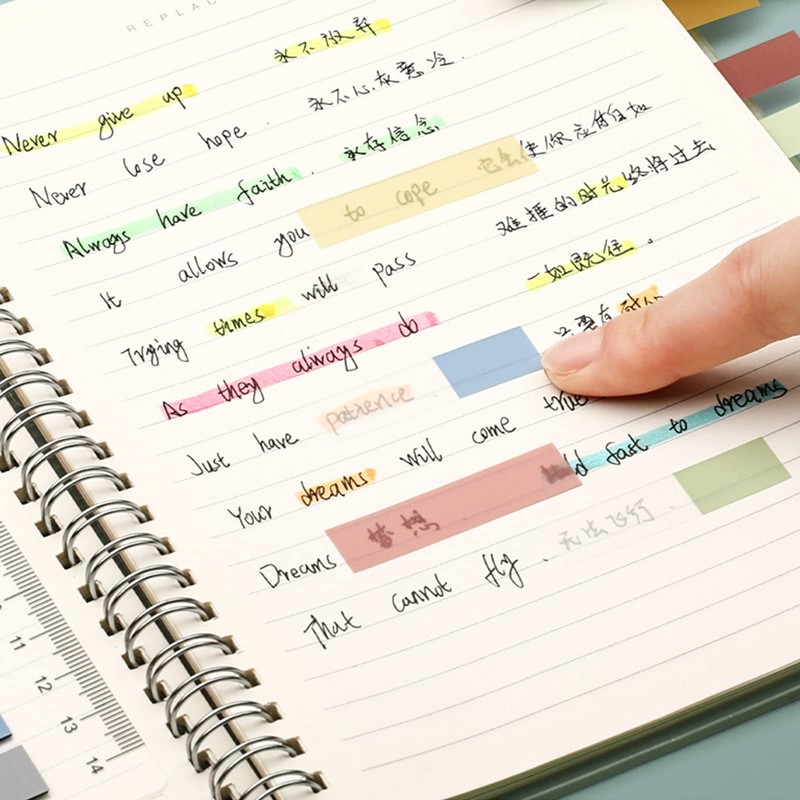 REPLAC
Never give up 永不放弃
Never lose hope. 永不心灰意冷.
Always have faith. 永存信念
It allows you to cope 它会使你应付自如
Trying times will pass 难捱的时光终将过去
As they always do 一如既往。
Just have patience 只要有耐心
Your dreams will come true
Dreams 梦想 Hold fast to dreams
That cannot fly. 无法飞行.
11
12
13
14